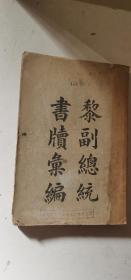 黎副總統
書牘彙編